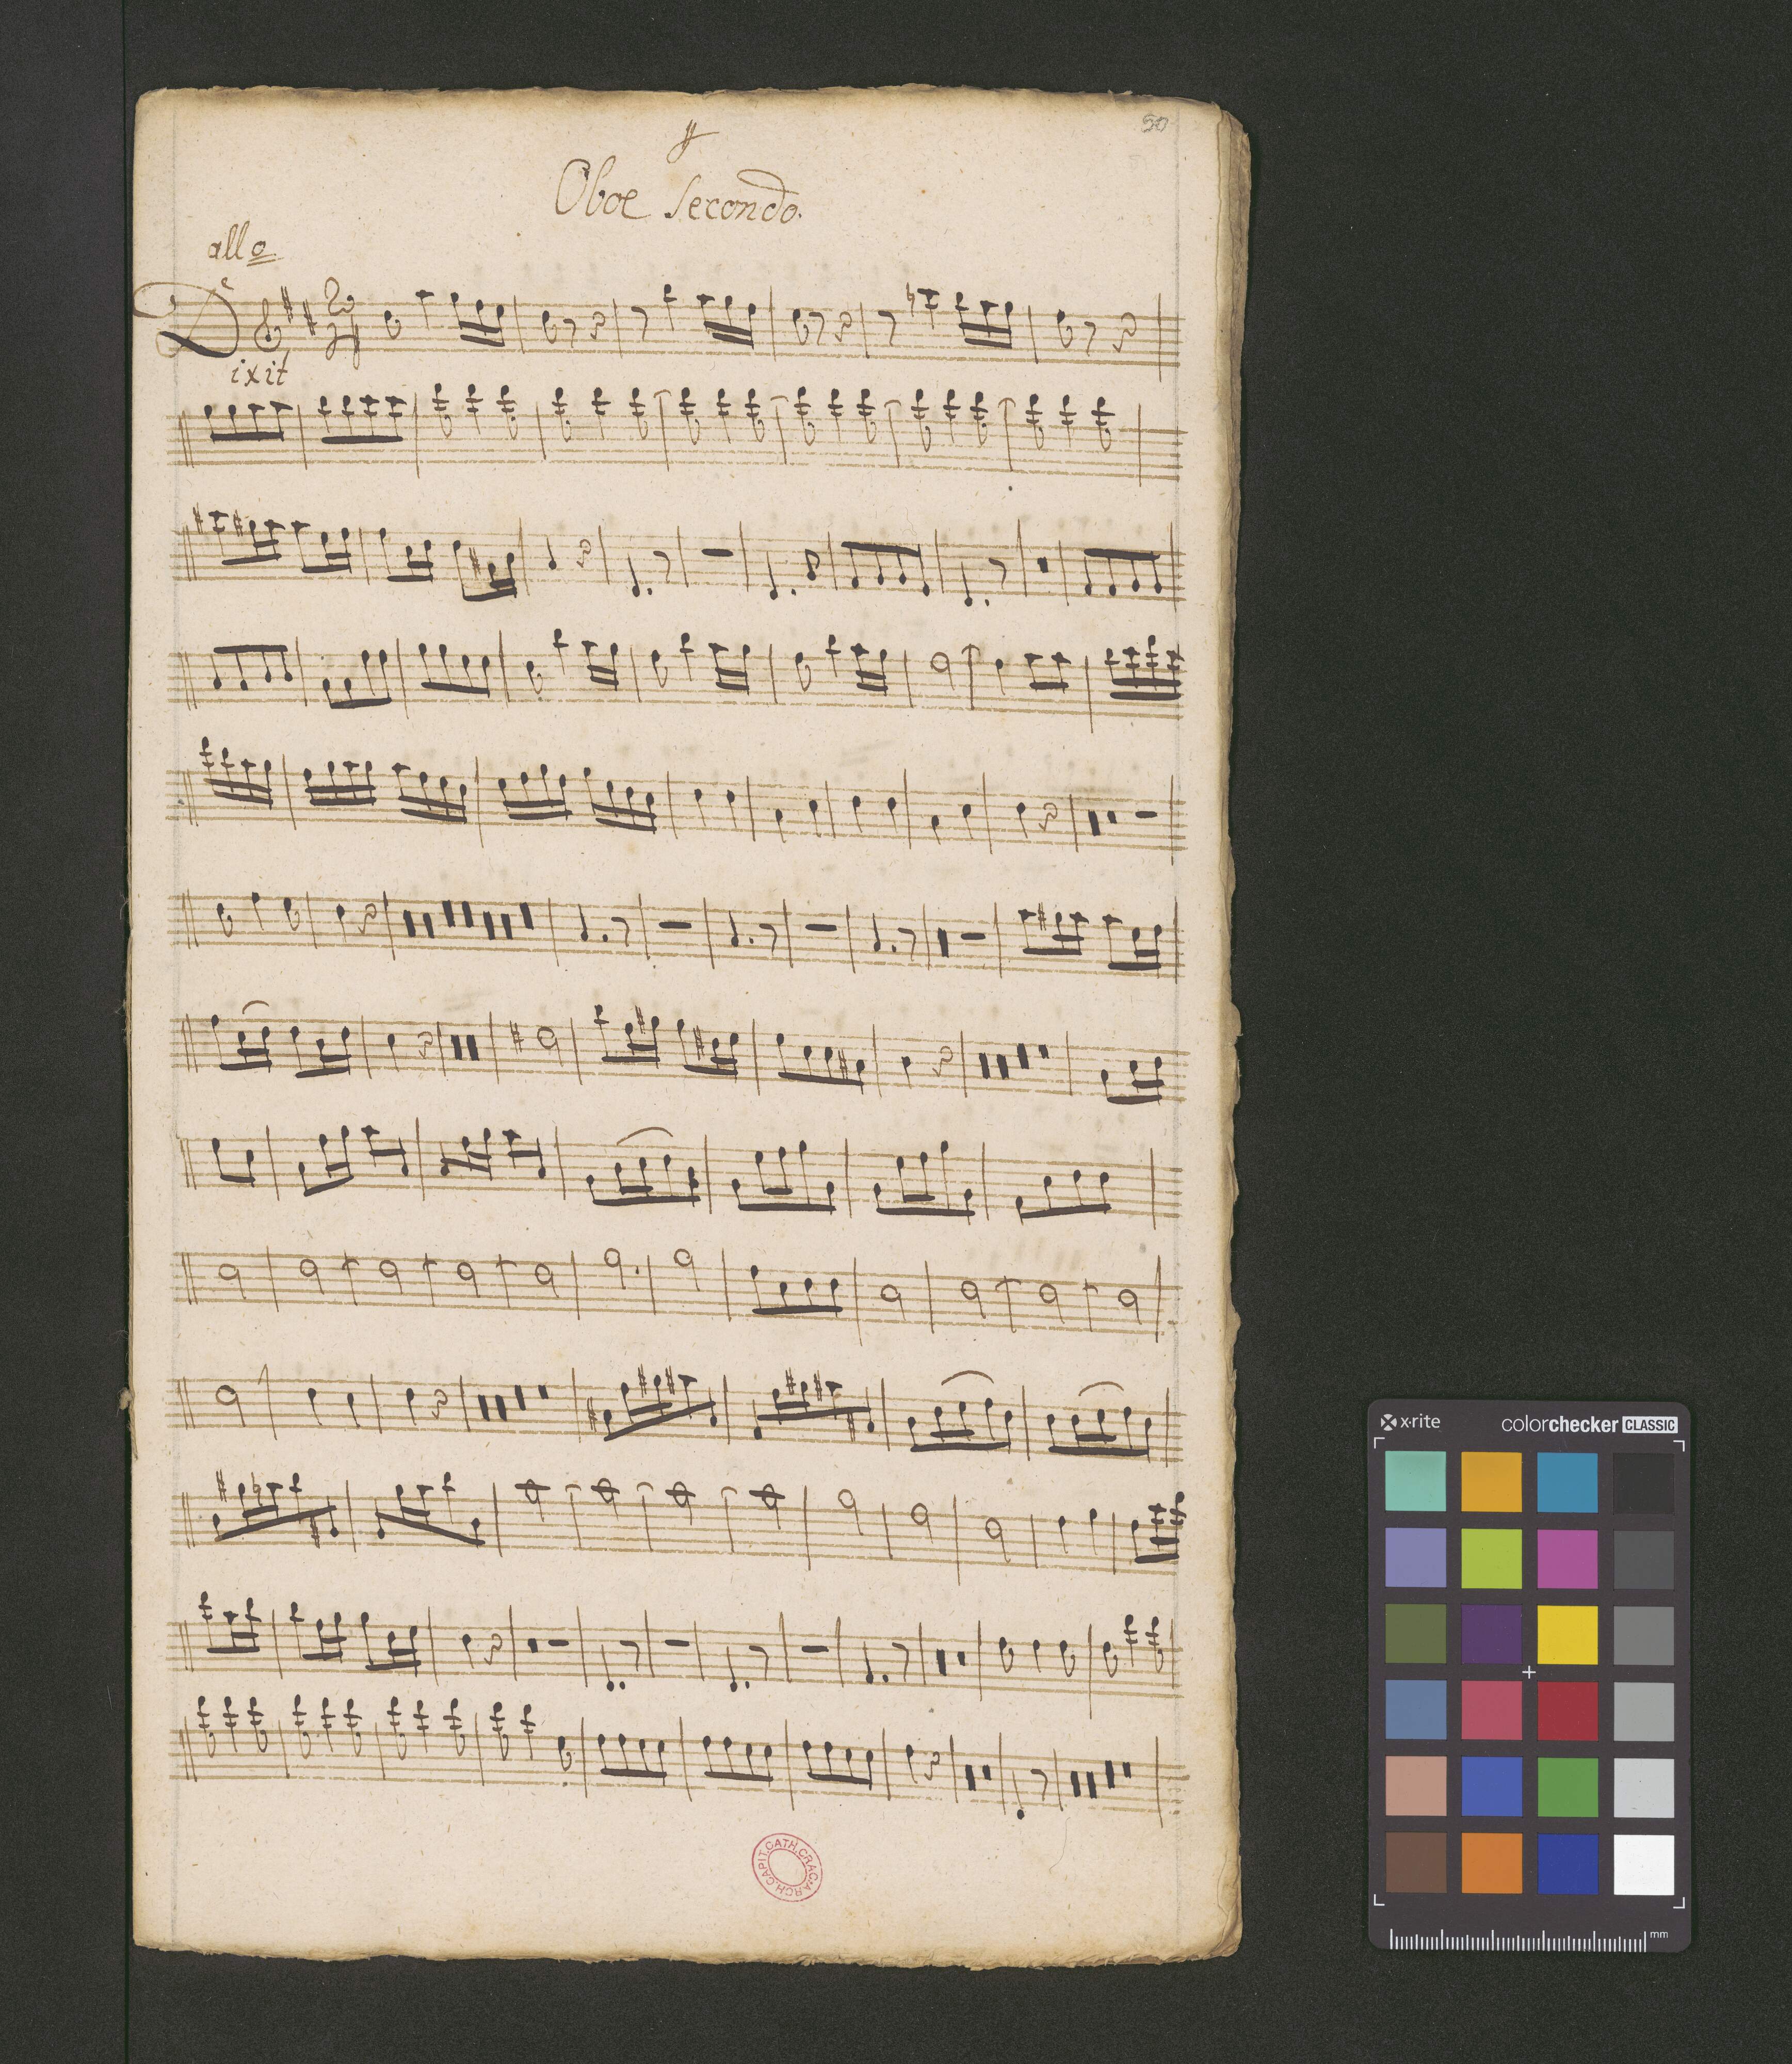 50
Oboe Secondo.
allo
Dixit
2
4
ARCH. CAPIT. CATH. CRAC.
x-rite
colorchecker CLASSIC
mm